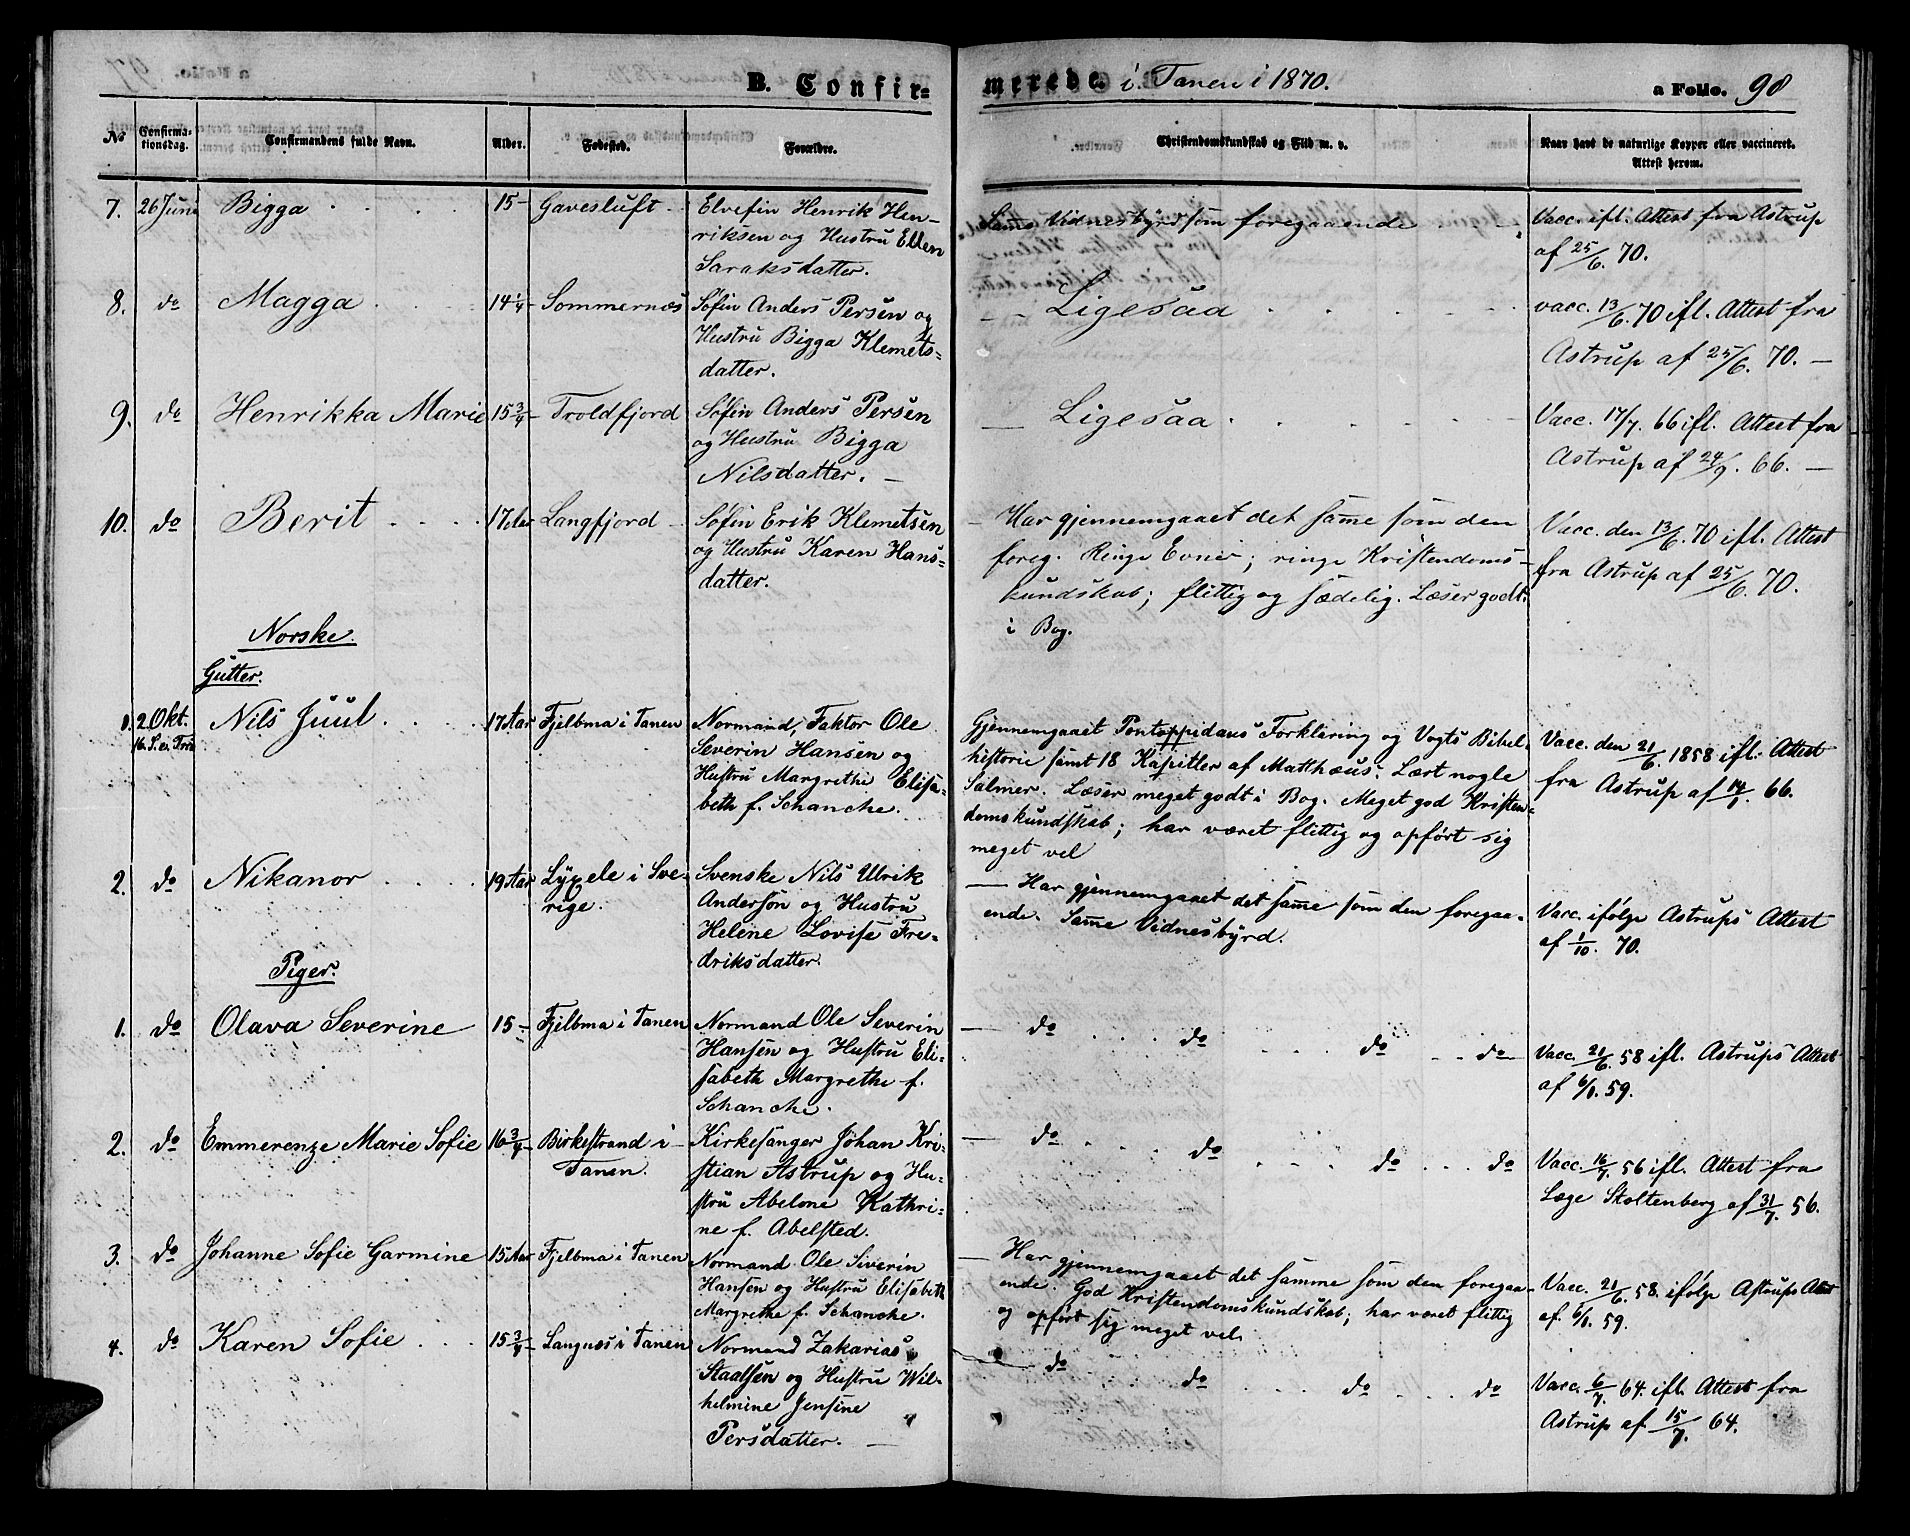 B. Confirmerede i Tanen i 1870. a Folio. 98
No Confirmationsdag. Confirmandens fulde Navn. Alder. Fødested. Forældre. Christendomskundskab og Flid m. v. Naar havt de naturlige Kopper eller vaccineret. Attest herom.
7. 26 Juni Bigga 15 – Gavesluft Elvefin Henrik Hen-
riksen og Hustru Ellen
Saraksdatter.
Samme Vidnesbyrd som foregaaende
Vacc. ifl. Attest fra Astrup
af 25/6. 70.
8. do Magga 14 1/4 – Sommernæs Søfin Anders Persen og
Hustru Bigga Klemets-
datter.
– Ligesaa
vacc. 13/6. 70 ifl. Attest fra
Astrup af 25/6. 70. –
9. do Henrikka Marie 15 3/4 – Troldfjord Søfin Anders Persen
og Hustru Bigga
Nilsdatter. –
– Ligesaa
Vacc. 17/7. 66 ifl. Attest fra
Astrup af 24/9. 66. –
10. do Berit 17 Aar Langfjord Søfin Erik Klemetsen
og Hustru Karen Hans-
datter.
– Har gjennemgaaet det same som den
foreg. Ringe Evner; ringe Kristendoms-
kundskab; flittig og sædelig. Læser godt
i Bog.
Vacc. den 13/6. 70 ifl. Attest
fra Astrup af 25/6. 70.
Norske.
Gutter.
1. 2 Okt.
16. S. e. Trin
Nils Juul 17 Aar Fjelbma i Tanen Normand, Faktor Ole
Severin Hansen og
Hustru Margrethe Elisa-
beth f. Schanche.
Gjennemgaaet Pontoppidans Forklaring og Vogts Bibel-
historie samt 18 Kapitler af Matthæus. Lært nogle
Salmer. Læser meget godt i Bog. Meget god Kristen-
domskundskab; har været flittig og opført sig
meget vel
Vacc. den 21/6. 1858 ifl. Attest
fra Astrup af 14/1. 66.
2. do Nikanor 19 Aar Lyxele i Sve-
rige.
Svenske Nils Ulrik
Anderson og Hustru
Helene Lovise Fre-
driksdatter.
– Har gjennemgaaet det same som den foregaa-
ende. Same Vidnesbyrd.
Vacc. ifølge Astrups Attest
af 1/10. 70.
Piger.
1. do Olava Severine 15 – Fjelbma i Tanen Normand Ole Severin
Hansen og Hustru Eli-
sabeth Margrethe f.
Schanche.
– do do do do
Vacc. 21/6. 58 ifl. Astrups Attest
af 6/1. 59.
2. do Emmerenze Marie Sofie 16 3/4 – Birkestrand i
Tanen.
Kirkesanger Johan Kri-
stian Astrup og Hu-
stru Abelone Kathri-
ne f. Abelsted.
– do do do do
Vacc. 16/7. 56 ifl. Attest fra
Læge Stoltenberg af 31/7. 56.
3. do Johanne Sofie Garmine 15 Aar Fjelbma i Tanen Normand Ole Severin
Hansen og Hustru Elisabeth
Margrethe f. Schanche.
– Har gjennemgaaet det samme som den foregaa-
ende. God Kristendomskundskab; har været flittig
og opført sig meget vel.
Vacc. 21/6. 58. ifølge Astrups Attest
af 6/1. 59.
4. do Karen Sofie 15 3/4 – Langnæs i Tanen Normand Zakarias
Staalsen og Hustru Wil-
helmine Jensine
Persdatter. –
– do do do do
Vacc. 6/7. 64. ifl. Attest fra
Astrup af 15/7. 64.